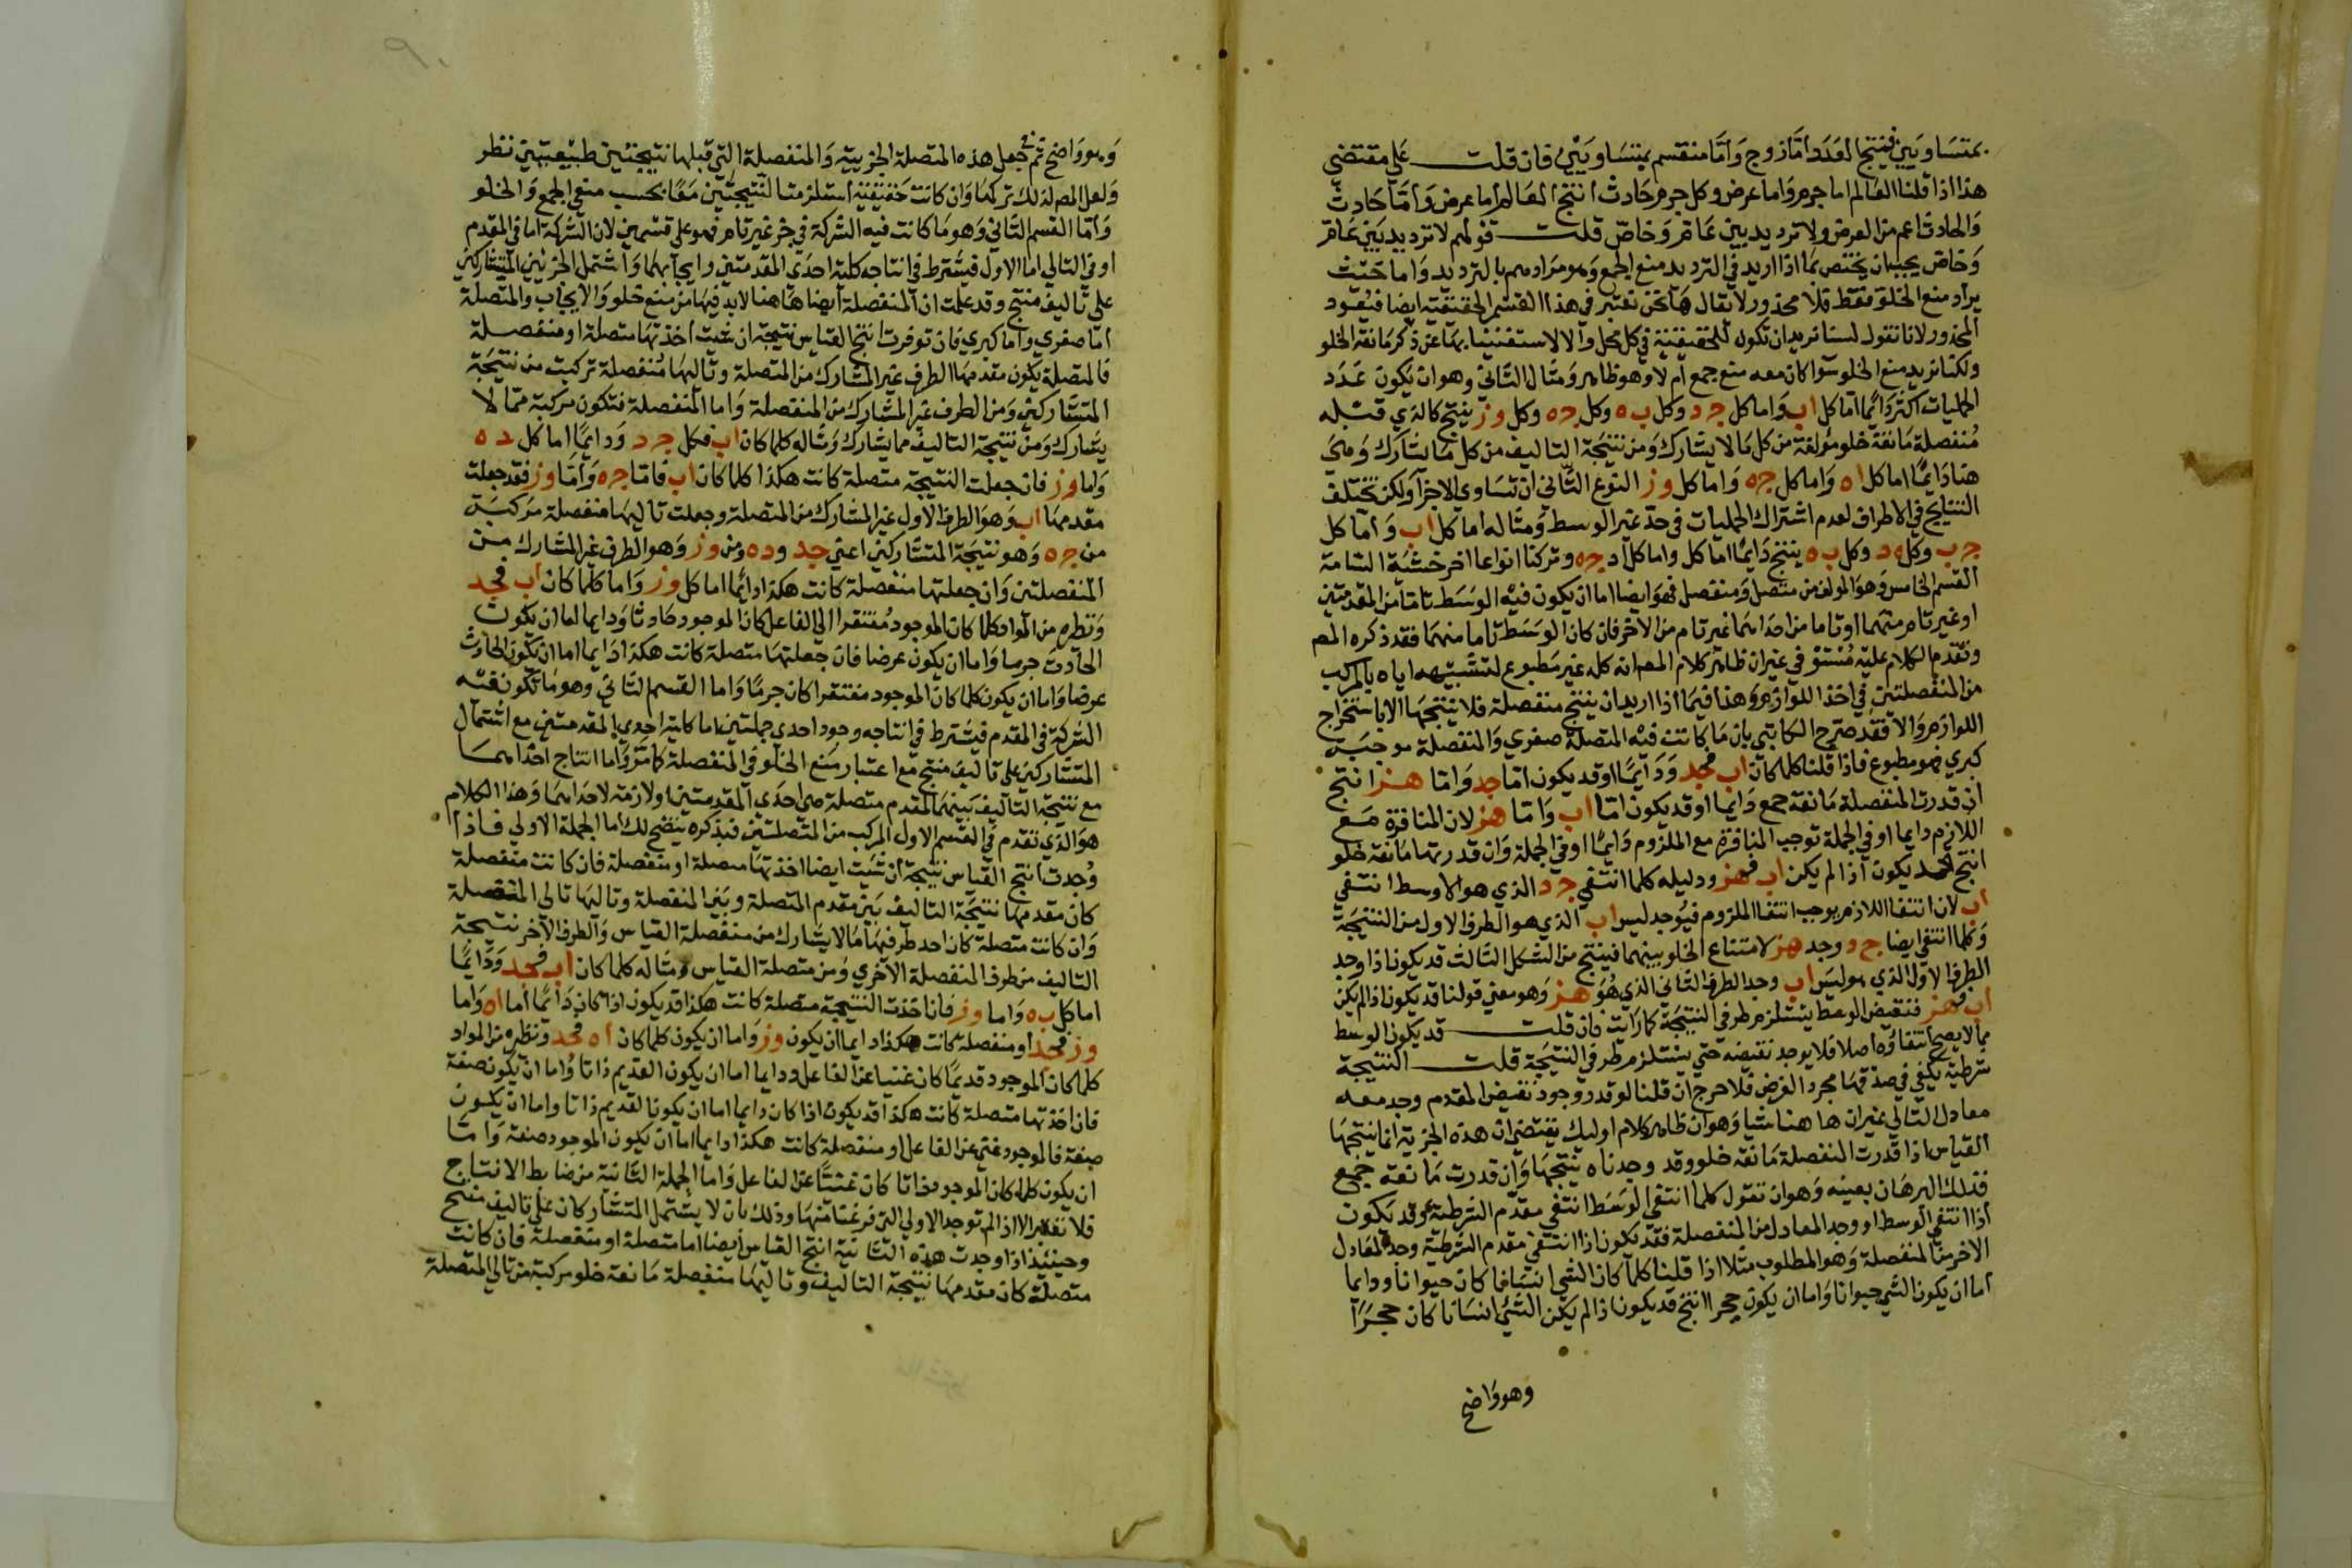 بمتساويين فينتج العدد اما زوج واما منقسم بمتساويين فان قلت على مقتضى
هذا اذا قلنا العالم اما جرم واما عرض وكل جرم حادث انتج العالم اما عرض واما حادث
والحادث اعم من العرض ولا ترديد بين عام وخاص قلت قولهم لا ترديد بين عام
وخاص يجب ان يختص بما اذا اريد في الترديد منع الجمع وهو مرادهم بالترديد واما حيث
يراد منع الخلو فقط فلا محذور لا يقال نحن نعتبر في هذا القسم الحقيقية ايضا فيعود
المحذور لانا نقول لسنا نريد ان تكون للحقيقية في كل محل والا لاستغنينا بها عن ذكر مانعة الخلو
ولكنا نريد منع الخلو سوا كان معه منع جمع ام لا وهو ظاهر ومثال الثاني وهو ان يكون عدد
الحمليات اكثر دايما اما كل اب واما كل جد وكل ب ه وكل ج ه وكل وز ينتج كالذي قبله
منفصلة مانعة خلو مولفة من كل ما لا يشارك ومن نتيجة التاليف من كل ما يشارك وهي
هنا دايما اما كل اه واما كل جه واما كل وز النوع الثاني ان تساوي الاجزا ولكن تختلف
النتايج في الاطراف لعدم اشتراك الحمليات في حد غير الوسط ومثاله اما كل اب واما كل
ج ب وكل ه د وكل ب ه ينتج دايما اما كل واما كل اد جه وتركنا انواعا اخر خشية السامة
القسم الخامس وهو المولف من متصل ومنفصل فهو ايضا اما ان يكون فيه الوسط تاما من المقدمتين
او غير تام منهما او تاما من احداهما غير تام من الاخر فان كان الوسط تاما منهما فقد ذكره المص
وتقدم الكلام عليه مستوفي غير ان ظاهر كلام المص انه كله غير مطبوع لتشبيهه اياه بالمركب
من المنفصلتين في اخذ اللوازم وهذا فيما اذا اريد ان ينتج منفصلة فلا ينتجها الا باستخراج
اللوازم والا فقد صرح الكاتبي بان ما كانت فيه المتصلة صغري والمنفصلة موجبة
كبري فهو مطبوع فاذا قلنا كلما كان اب فجد ودايما او قد يكون اما جد واما هز انتج
ان قدرت المنفصلة مانعة جمع دايما او قد يكون اما اب واما هز لان المنافرة مع
اللازم دايما او في الجملة توجب المنافرة مع الملزوم دايما او في الجملة وان قدرتها مانعة خلو
انتج قد يكون اذا لم يكن اب فهز ودليله كلما انتفي جد الذي هو الاوسط انتفي
اب لان انتفا اللازم يوجب انتفا الملزوم فيوجد ليس اب الذي هو الطرف الاول من النتيجة
وكلما انتفي ايضا جد وجد هز لامتناع الخلو بينهما فينتج من الشكل الثالث قد يكون اذا وجد
الطرف الاول الذي هو ليس اب وجد الطرف الثاني الذي هو هز وهو معني قولنا قد يكون اذا لم يكن
اب فهز فنقيض الوسط يستلزم طرفي النتيجة كما رايت فان قلت قد يكون الوسط
مما لا يصح انتفاؤه اصلا فلا يوجد نقيضه حتي يستلزم طرفي النتيجة قلت النتيجة
شرطية يكفي في صدقها مجرد الفرض فلا حرج ان قلنا لو قدر وجود نقيض المقدم وجد معه
معادل التالي غير ان هاهنا شيا وهو ان ظاهر كلام اوليك يقتضي ان هذه الجزية انما ينتجها
القياس اذا قدرت المنفصلة مانعة خلو وقد وجدناه ينتجها وان قدرت مانعة جمع
فذلك البرهان بعينه وهو ان تقول كلما انتفي الوسط انتفي مقدم الشرطية وقد يكون
اذا انتفي الوسط او وجد المعادل من المنفصلة فقد يكون اذا انتفي مقدم الشرطية وجد المعادل
الاخر من المنفصلة وهو المطلوب مثلا اذا قلنا كلما كان الشي انسانا كان حيوانا ودايما
اما ان يكون الشي حيوانا واما ان يكون حجرا انتج قد يكون اذا لم يكن الشي انسانا كان حجرا
وهو واضح
وهو واضح ثم في جعل هذه المتصلة الجزيية والمنفصلة التي قبلها نتيجتين طبيعيتين نظر
ولعل المص لذلك تركهما وان كانت حقيقية استلزمت النتيجتين معا بحسب منعي الجمع والخلو
واما القسم الثاني وهو ما كانت فيه الشركة في جز غير تام فهو علي قسمين لان الشركة اما في المقدم
او في التالي اما الاول فيشترط في انتاجه كلية احدي المقدمتين وايجابهما واشتمال الجزئين المتشاركين
علي تاليف منتج وقد علمت ان المنفصلة ايضا هاهنا لابد فيها من منع خلو والايجاب والمتصلة
اما صغري واما كبري فان توفرت انتج القياس نتيجة ان شيت اخذتها متصلة او منفصلة
فالمتصلة يكون مقدمها الطرف غير المشارك من المتصلة وتاليها منفصلة تركبت من نتيجة
المتشاركين ومن الطرف غير المشارك من المنفصلة واما المنفصلة فتكون مركبة مما لا
يشارك ومن نتيجة التاليف مما يشارك ومثاله كلما كان اب فكل جد ودايما اما كل ده
واما وز فان جعلت النتيجة متصلة كانت هكذا كلما كان اب فاما جه واما وز فقد جعلت
مقدمها اب وهو الطرف الاول غير المشارك من المتصلة وجعلت تاليها منفصلة مركبة
من جه وهو نتيجة المتشاركين اعني جد وده ومن وز وهو الطرف غير المشارك من
المنفصلتين وان جعلتها منفصلة كانت هكذا دايما اما كل وز واما كلما كان اب فجد
ونظيره من المواد كلما كان الموجود مفتقرا الي الفاعل كان الموجود حادثا ودايما اما ان يكون
الحادث جرما واما ان يكون عرضا فان جعلتها متصلة كانت هكذا دايما اما ان يكون الحادث
عرضا واما ان يكون كلما كان الموجود مفتقرا كان جرما واما القسم الثاني وهو ما تكون فيه
الشركة في المقدم فيشترط في انتاجه وجود احدي جملتين اما كلية احدي المقدمتين مع اشتمال
المتشاركين علي تاليف منتج مع اعتبار منع الخلو في المنفصلة كما مر واما انتاج احداهما
مع نتيجة التاليف بينهما لمقدم متصلة هي احدي المقدمتين او لازمة لاحداهما وهذا الكلام
هو الذي تقدم في القسم الاول المركب من المتصلتين فبذكره يتضح لك اما الجملة الاولي فاذا
وجدت انتج القياس نتيجة ان شيت ايضا اخذتها متصلة او منفصلة فان كانت منفصلة
كان مقدمها نتيجة التاليف بين مقدم المتصلة وبين المنفصلة وتاليها تالي المتصلة
وان كانت متصلة كان احد طرفيها ما لا يشارك من منفصلة القياس والطرف الاخر نتيجة
التاليف من طرف المنفصلة الاخري ومن متصلة القياس ومثاله كلما كان اب فجد ودايما
اما كل ب ه واما وز فان اخذت النتيجة متصلة كانت هكذا قد يكون اذا كان دايما اما اه واما
وز فجد او منفصلة كانت هكذا دايما ان يكون وز واما ان يكون كلما كان اه فجد ونظيره من المواد
كلما كان الموجود قديما كان غنيا عن الفاعل ودايما اما ان يكون القديم ذاتا واما ان يكون صفة
فان اخذتها متصلة كانت هكذا قد يكون اذا كان دايما اما ان يكون القديم ذاتا واما ان يكون
صفة فالموجود غني عن الفاعل او منفصلة كانت هكذا دايما اما ان يكون الموجود صفة واما
ان يكون كلما كان الموجود ذاتا كان غنيا عن الفاعل واما الجملة الثانية من ضابط الانتاج
فلا تعتبر الا اذا لم توجد الاولي التي فرغنا منها وذلك بان لا يشتمل المتشاركان علي تاليف منتج
وحينئذ اذا وجدت هذه الثانية انتج القياس ايضا اما متصلة او منفصلة فان كانت
متصلة كان مقدمها نتيجة التاليف وتاليها منفصلة مانعة خلو مركبة من تالي المتصلة